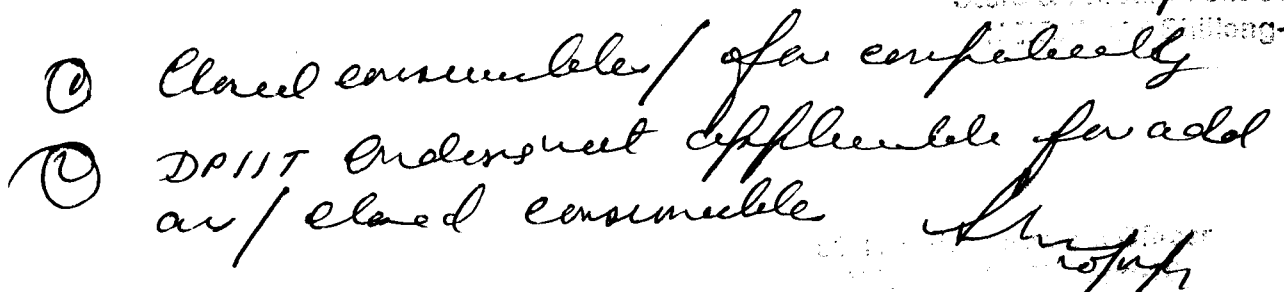 Shillong-
① Closed consumables / open compatibility
② DPIIT Endorsement applicable for add
on / closed consumable